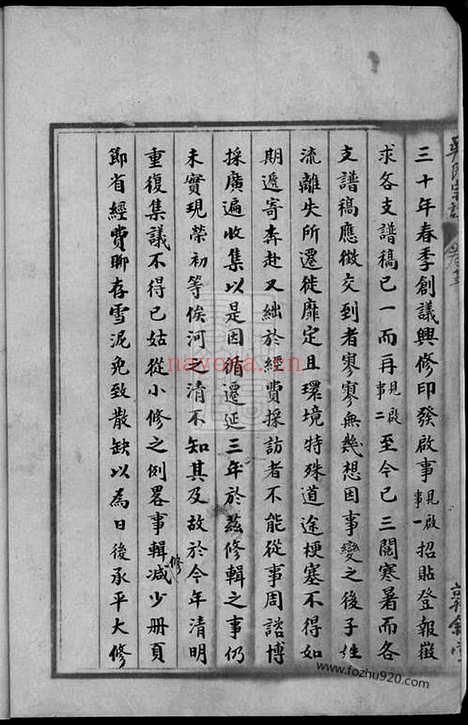 三十年春季創議興修印發啟事見啟一招貼登報徵
求各支譜稿已一而再見啟二至今已三閱寒暑而各
支譜稿應徵交到者寥寥無幾想因事變之後子姓
流離失所遷徙靡定且環境特殊道途梗塞不得如
期遞寄奔赴又絀於經費採訪者不能從事周諮博
採廣遍收集以是因循遷延三年於茲修輯之事仍
未實現榮初等俟河之清不知其及故於今年清明
重復集議不得已姑從小修之例畧事輯修減少册頁
節省經費聊存雪泥免致散缺以為日後承平大修
nayona.cn
www.fozhu920.com